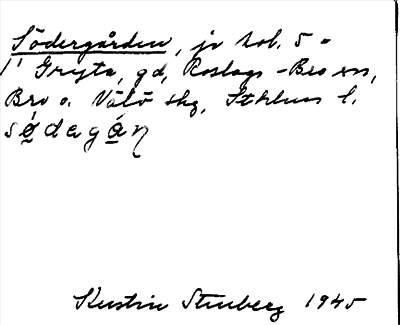 Södergården, jo bol. 5 =
1/ Gryta, gd, Roslags-Bro sn,
Bro o. Vätö skg, Sthlms l.
södagán
Kerstin Stenberg 1945